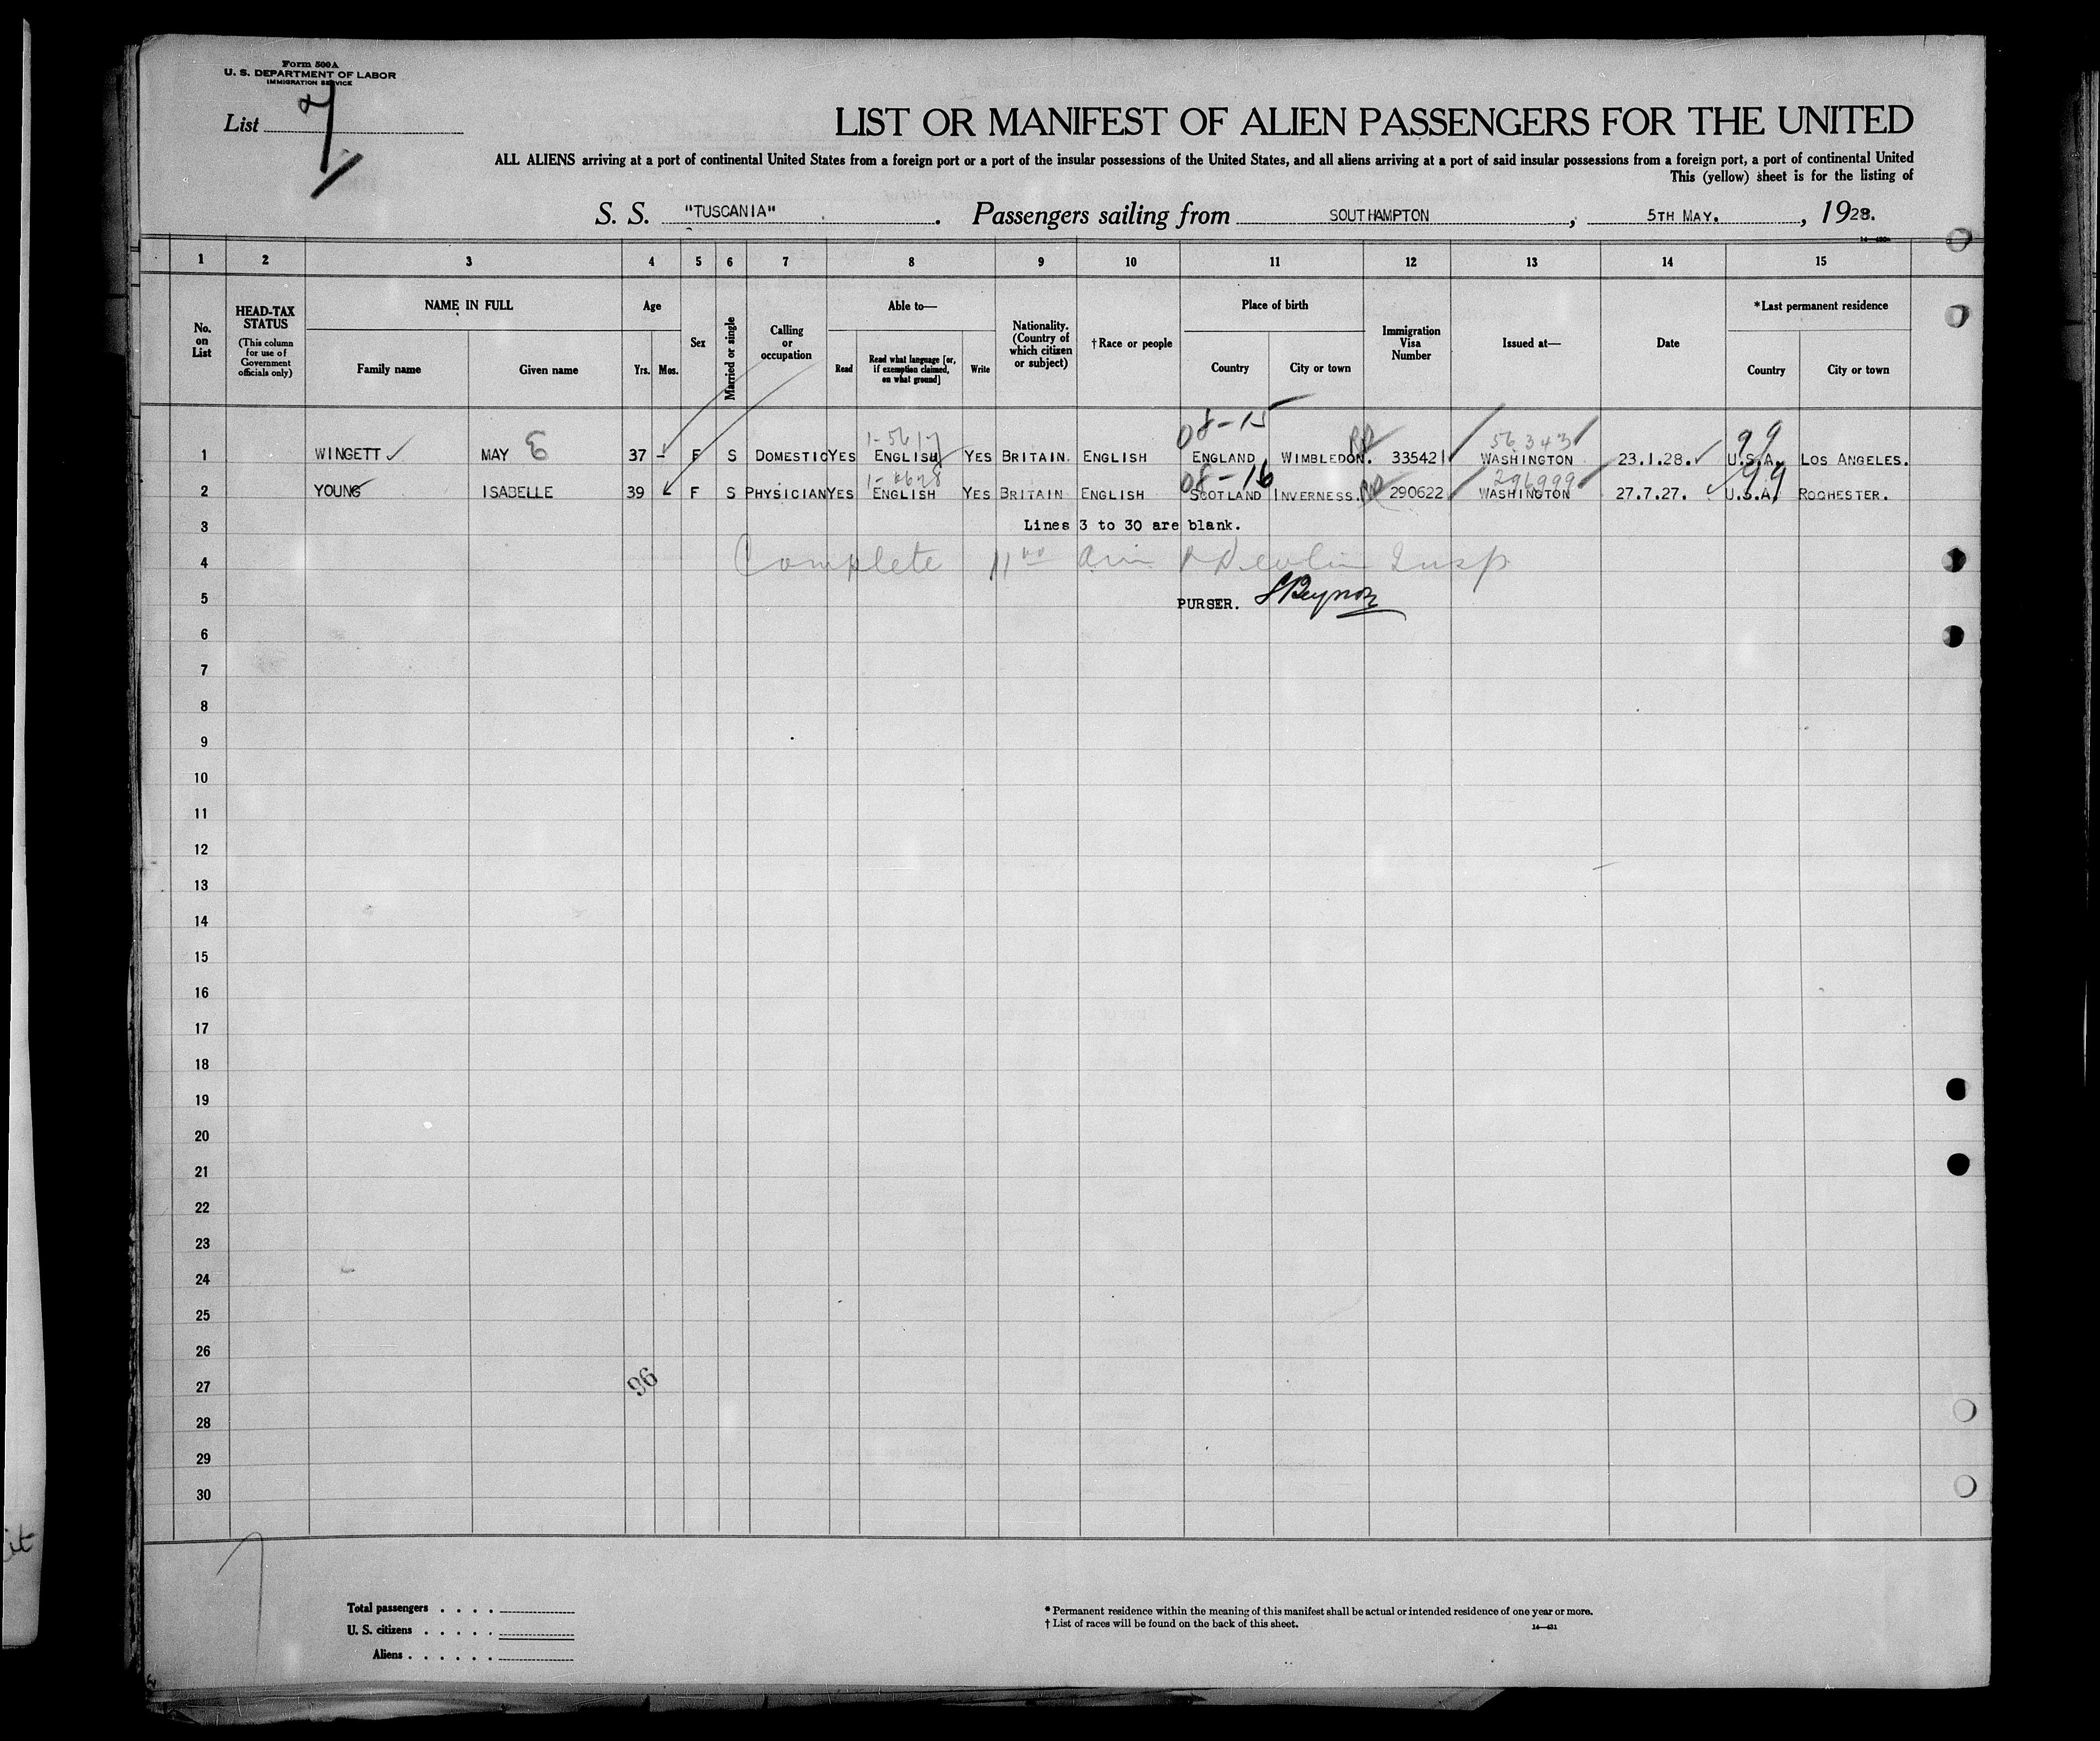 Form 500A
U. S. DEPARTMENT OF LABOR
IMMIGRATION SERVICE
List 7
LIST OR MANIFEST OF ALIEN PASSENGERS FOR THE UNITED
ALL ALIENS arriving at a port of continental United States from a foreign port or a port of the insular possessions of the United States, and all aliens arriving at a port of said insular possessions from a foreign port, a port of continental United
This (yellow) sheet is for the listing of
S. S. "TUSCANIA" . Passengers sailing from SOUTHAMPTON , 5TH MAY. , 1928.
1 2 3 4 5 6 7 8 9 10 11 12 13 14 15
No. on List
HEAD-TAX STATUS (This column for use of Government officials only)
NAME IN FULL
Family name Given name
Age
Yrs. Mos.
Sex
Married or single
Calling or occupation
Able to—
Read
Read what language [or, if exemption claimed, on what ground]
Write
Nationality. (Country of which citizen or subject)
†Race or people
Place of birth
Country City or town
Immigration Visa Number
Issued at—
Date
*Last permanent residence
Country City or town
08-15
1-5617 56343 99
1 WINGETT MAY E 37 - F S DOMESTIC YES ENGLISH YES BRITAIN. ENGLISH ENGLAND WIMBLEDON. 335421 WASHINGTON 23.1.28. U.S.A. LOS ANGELES.
08-16 296999 99
2 YOUNG ISABELLE 39 F S PHYSICIAN YES ENGLISH YES BRITAIN ENGLISH SCOTLAND INVERNESS. 290622 WASHINGTON 27.7.27. U.S.A. ROCHESTER.
3 Lines 3 to 30 are blank.
4 Complete 11 00 am Devlin Insp.
5 PURSER. Beynon
6
7
8
9
10
11
12
13
14
15
16
17
18
19
20
21
22
23
24
25
26
27 96
28
29
30
Total passengers . . . .
U. S. citizens . . . . .
Aliens . . . . . .
* Permanent residence within the meaning of this manifest shall be actual or intended residence of one year or more.
† List of races will be found on the back of this sheet.
14—431